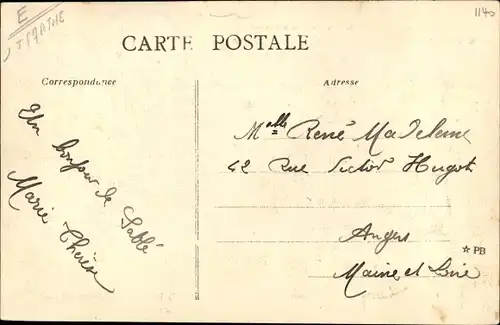 E
1140
CARTE POSTALE
Correspondance
Adresse
Un bonjour de Sablé
Marie Thérèse
Melle René Madeleine
42 Rue Victor Hugot
Angers
Maine et Loire
☆ PB